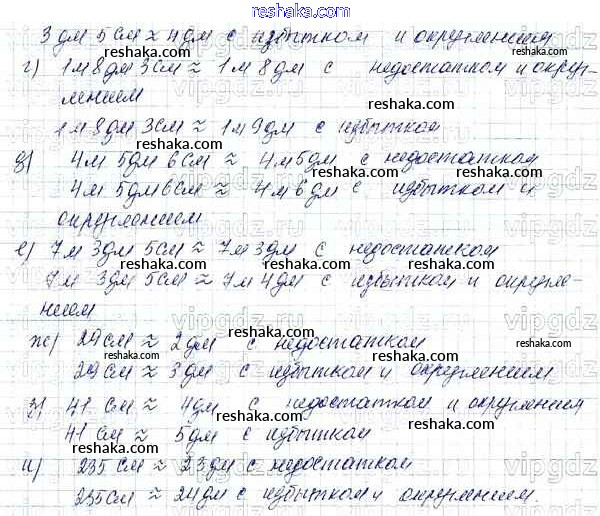 reshaka.com
3 дм 5 см ≈ 4 дм с избытком и округлением
reshaka.com
г) 1 м 8 дм 3 см ≈ 1 м 8 дм с недостатком и округ-
лением
reshaka.com
1 м 8 дм 3 см ≈ 1 м 9 дм с избытком
reshaka.com
д) 4 м 5 дм 6 см ≈ 4 м 5 дм с недостатком
reshaka.com
4 м 5 дм 6 см ≈ 4 м 6 дм с избытком и
округлением
reshaka.com
е) 7 м 3 дм 5 см ≈ 7 м 3 дм с недостатком
reshaka.com
7 м 3 дм 5 см ≈ 7 м 4 дм с избытком и округле-
нием
reshaka.com
ж) 29 см ≈ 2 дм с недостатком
reshaka.com
29 см ≈ 3 дм с избытком и округлением
reshaka.com
з) 41 см ≈ 4 дм с недостатком и округлением
reshaka.com
41 см ≈ 5 дм с избытком
reshaka.com
и) 235 см ≈ 23 дм с недостатком
reshaka.com
235 см ≈ 24 дм с избытком и округлением.
reshaka.com